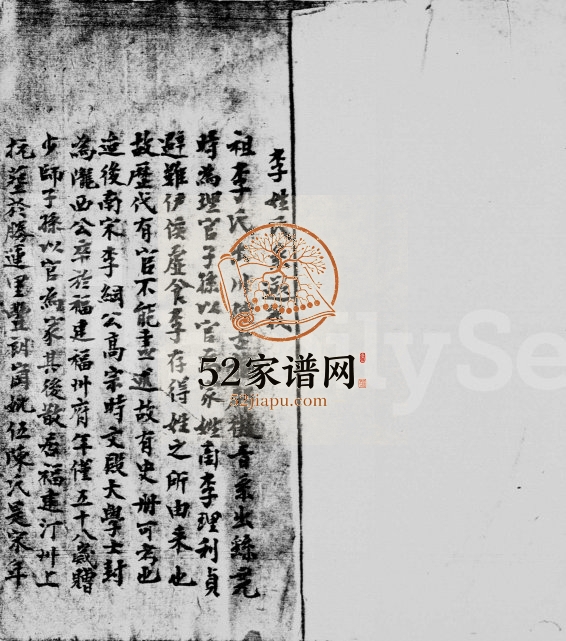 李姓氏
祖李氏 徵音系出繇堯
時為理官子孫以官 姓 李理利貞
避難伊侯虛食李存得姓之所由来也
故歷代有官不能盡述故有史册可考也
迨後南宋李綱公高宗時文殿大學士封
為隴西公卒於福建福州府年僅五十八歲贈
少師子孫以官為家其後散居福建汀州上
抚 於勝運里豐 妣伍陳氏 家年
52家谱网
52jiapu.com
ilySe